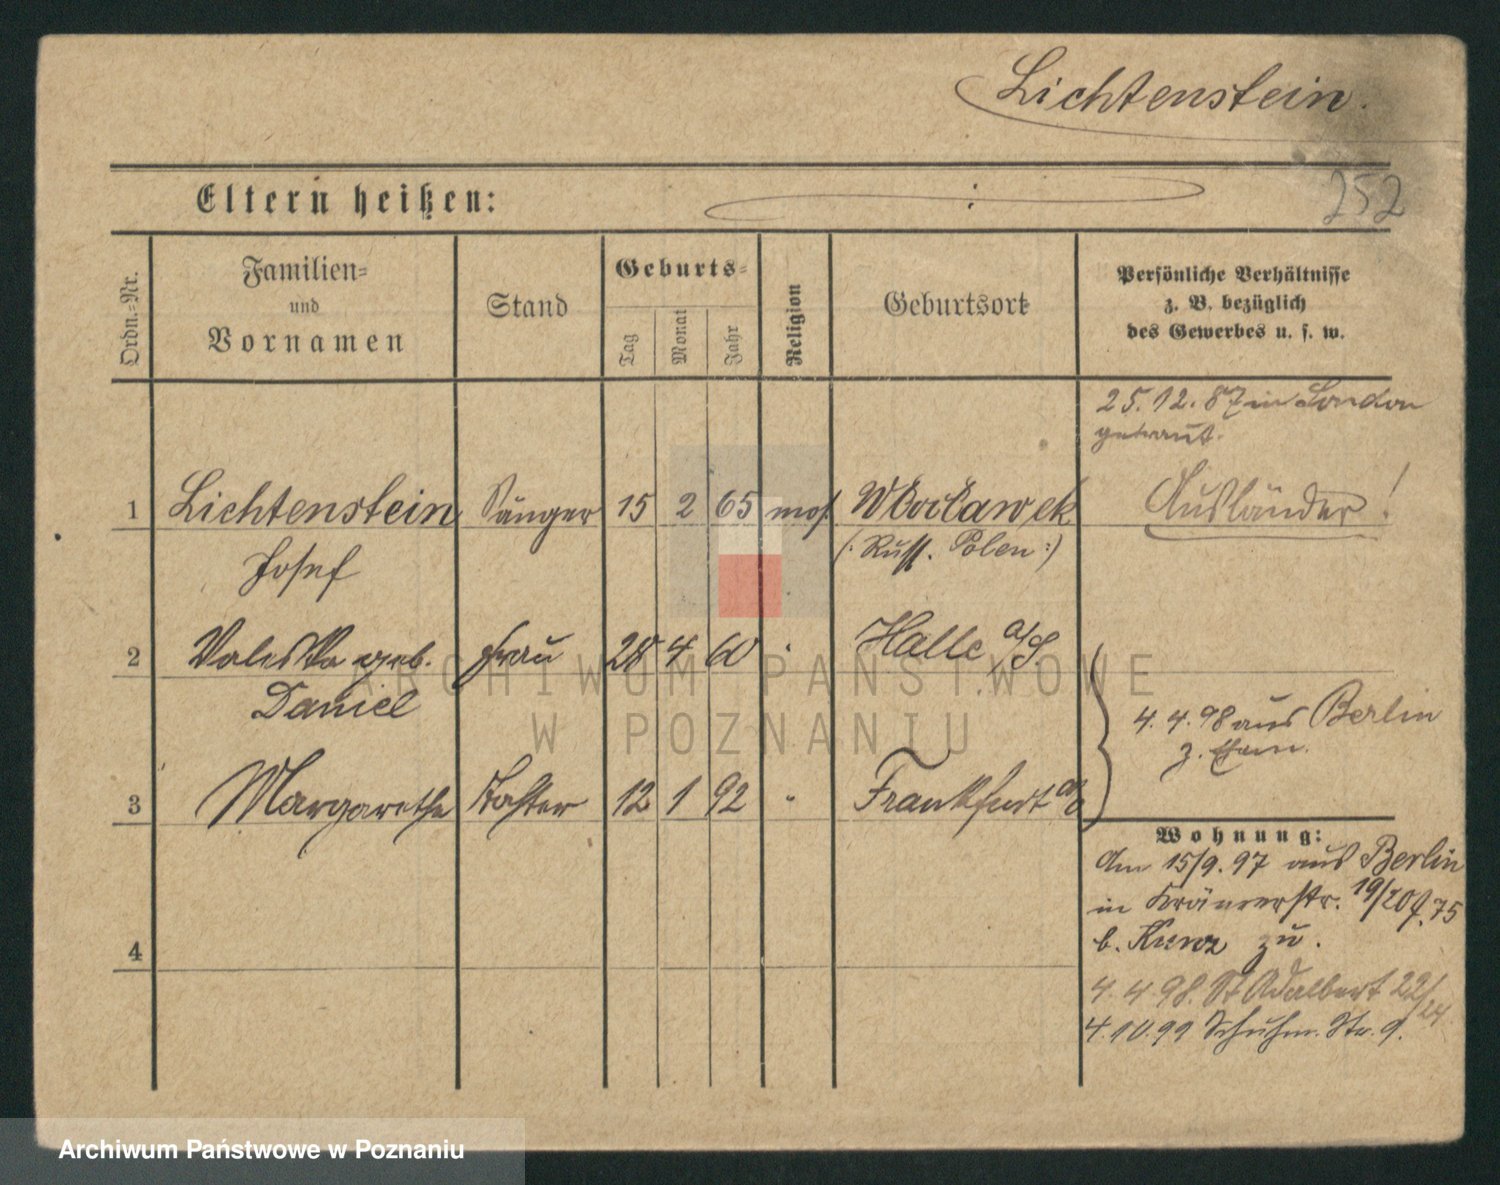 Lichtenstein.
252
Eltern heißen:
Ordn.-Nr.
Familien-
und
Vornamen
Stand
Geburts-
Tag
Monat
Jahr
Religion
Geburtsort
Persönliche Verhältnisse
z. B. bezüglich
des Gewerbes u. s. w.
25.12.87 in London
getraut.
1 Lichtenstein Sänger 15 2 65 mos. Włocławek Ausländer!
Josef (: Russ. Polen :)
2 Valeska geb. Frau 28 4 60 " Halle a/S.
Daniel
4.4.98 aus Berlin
z. Fam.
3 Margarethe Tochter 12 1 92 " Frankfurt a/O
Wohnung:
Am 15/9.97 aus Berlin
in Krämerstr. 19/20
b. zu.
4
4.4.98. St Adalbert 22/24
4.10.99 Schuhm. Str. 9.
ARCHIWUM PAŃSTWOWE
W POZNANIU
Archiwum Państwowe w Poznaniu